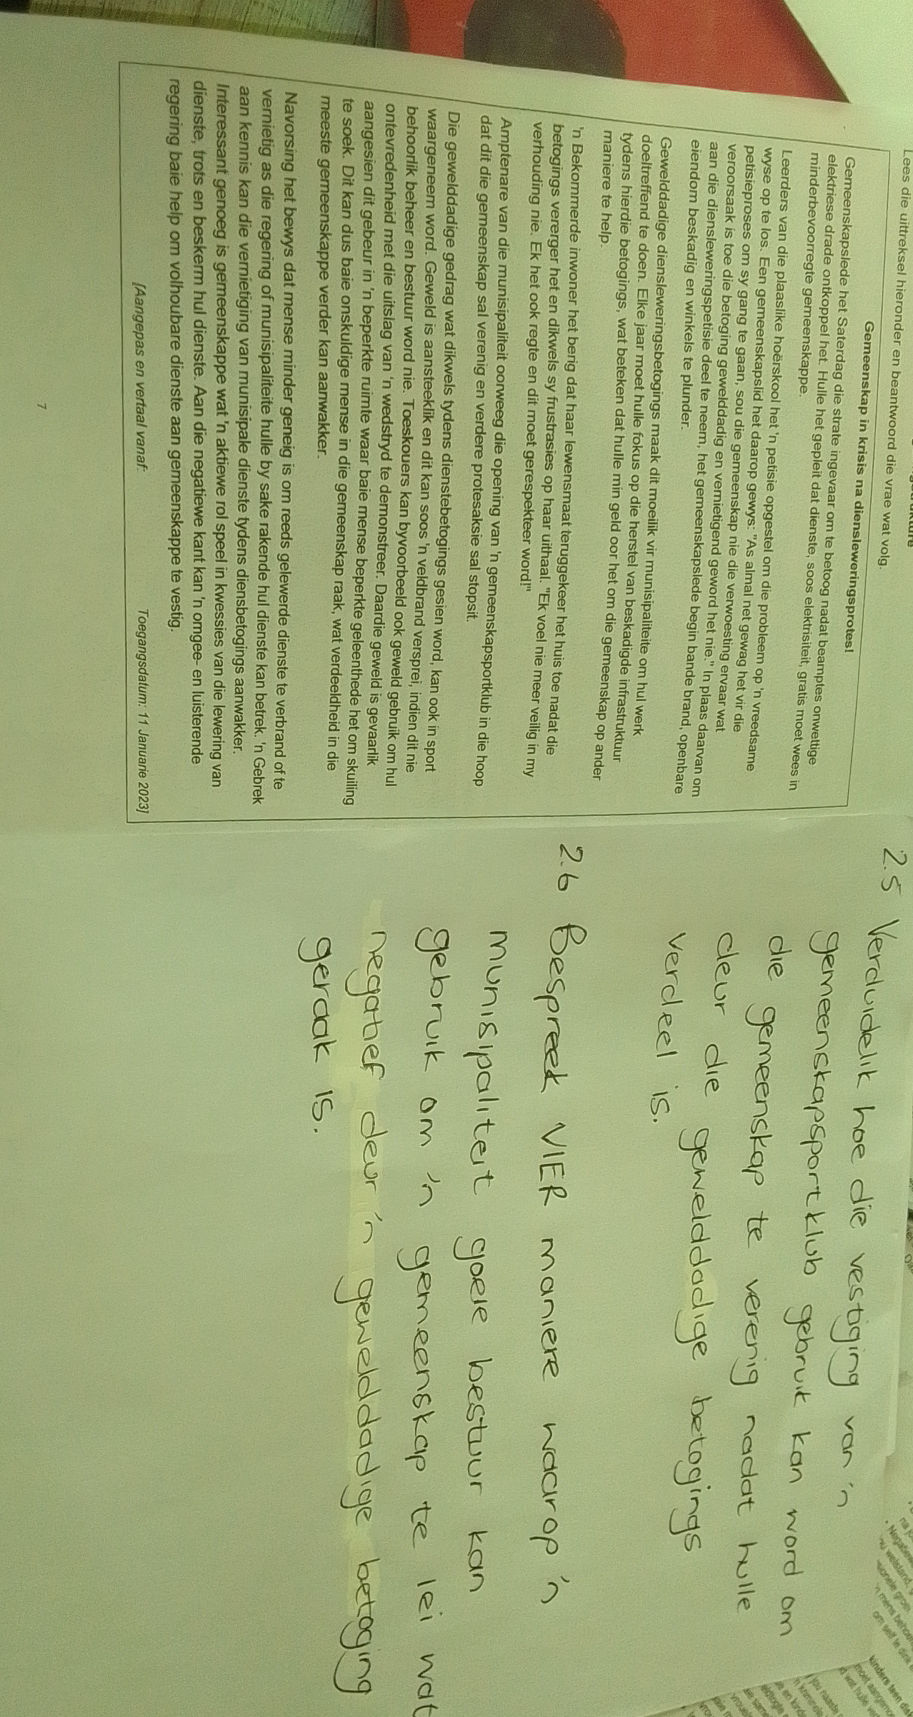 Lees die uittreksel hieronder en beantwoord die vrae wat volg.
Gemeenskap in krisis na diensleweringsprotes!
Gemeenskapslede het Saterdag die strate ingevaar om te betoog nadat beamptes onwettige
elektriese drade ontkoppel het. Hulle het gepleit dat dienste, soos elektrisiteit, gratis moet wees in
minderbevoorregte gemeenskappe.
Leerders van die plaaslike hoërskool het 'n petisie opgestel om die probleem op 'n vreedsame
wyse op te los. Een gemeenskapslid het daarop gewys: "As almal net gewag het vir die
petisieproses om sy gang te gaan, sou die gemeenskap nie die verwoesting ervaar wat
veroorsaak is toe die betoging gewelddadig en vernietigend geword het nie." In plaas daarvan om
aan die diensleweringspetisie deel te neem, het gemeenskapslede begin bande brand, openbare
eiendom beskadig en winkels te plunder.
Gewelddadige diensleweringsbetogings maak dit moeilik vir munisipaliteite om hul werk
doeltreffend te doen. Elke jaar moet hulle fokus op die herstel van beskadigde infrastruktuur
tydens hierdie betogings, wat beteken dat hulle min geld oor het om die gemeenskap op ander
maniere te help.
'n Bekommerde inwoner het berig dat haar lewensmaat teruggekeer het huis toe nadat die
betogings vererger het en dikwels sy frustrasies op haar uithaal. "Ek voel nie meer veilig in my
verhouding nie. Ek het ook regte en dit moet gerespekteer word!"
Amptenare van die munisipaliteit oorweeg die opening van 'n gemeenskapsportklub in die hoop
dat dit die gemeenskap sal verenig en verdere protesaksie sal stopsit.
Die gewelddadige gedrag wat dikwels tydens dienstebetogings gesien word, kan ook in sport
waargeneem word. Geweld is aansteeklik en dit kan soos 'n veldbrand versprei, indien dit nie
behoorlik beheer en bestuur word nie. Toeskouers kan byvoorbeeld ook geweld gebruik om hul
ontevredenheid met die uitslag van 'n wedstryd te demonstreer. Daardie geweld is gevaarlik
aangesien dit gebeur in 'n beperkte ruimte waar baie mense beperkte geleenthede het om skuiling
te soek. Dit kan dus baie onskuldige mense in die gemeenskap raak, wat verdeeldheid in die
meeste gemeenskappe verder kan aanwakker.
Navorsing het bewys dat mense minder geneig is om reeds gelewerde dienste te verbrand of te
vernietig as die regering of munisipaliteite hulle by sake rakende hul dienste kan betrek. 'n Gebrek
aan kennis kan die vernietiging van munisipale dienste tydens diensbetogings aanwakker.
Interessant genoeg is gemeenskappe wat 'n aktiewe rol speel in kwessies van die lewering van
dienste, trots en beskerm hul dienste. Aan die negatiewe kant kan 'n omgee- en luisterende
regering baie help om volhoubare dienste aan gemeenskappe te vestig.
[Aangepas en vertaal vanaf: Toegangsdatum: 11 Januarie 2023]
7
2.5 Verduidelik hoe die vestiging van 'n
gemeenskapsportklub gebruik kan word om
die gemeenskap te verenig nadat hulle
deur die gewelddadige betogings
verdeel is.
2.6 Bespreek VIER maniere waarop 'n
munisipaliteit goeie bestuur kan
gebruik om 'n gemeenskap te lei wat
negatief deur 'n gewelddadige betoging
geraak is.